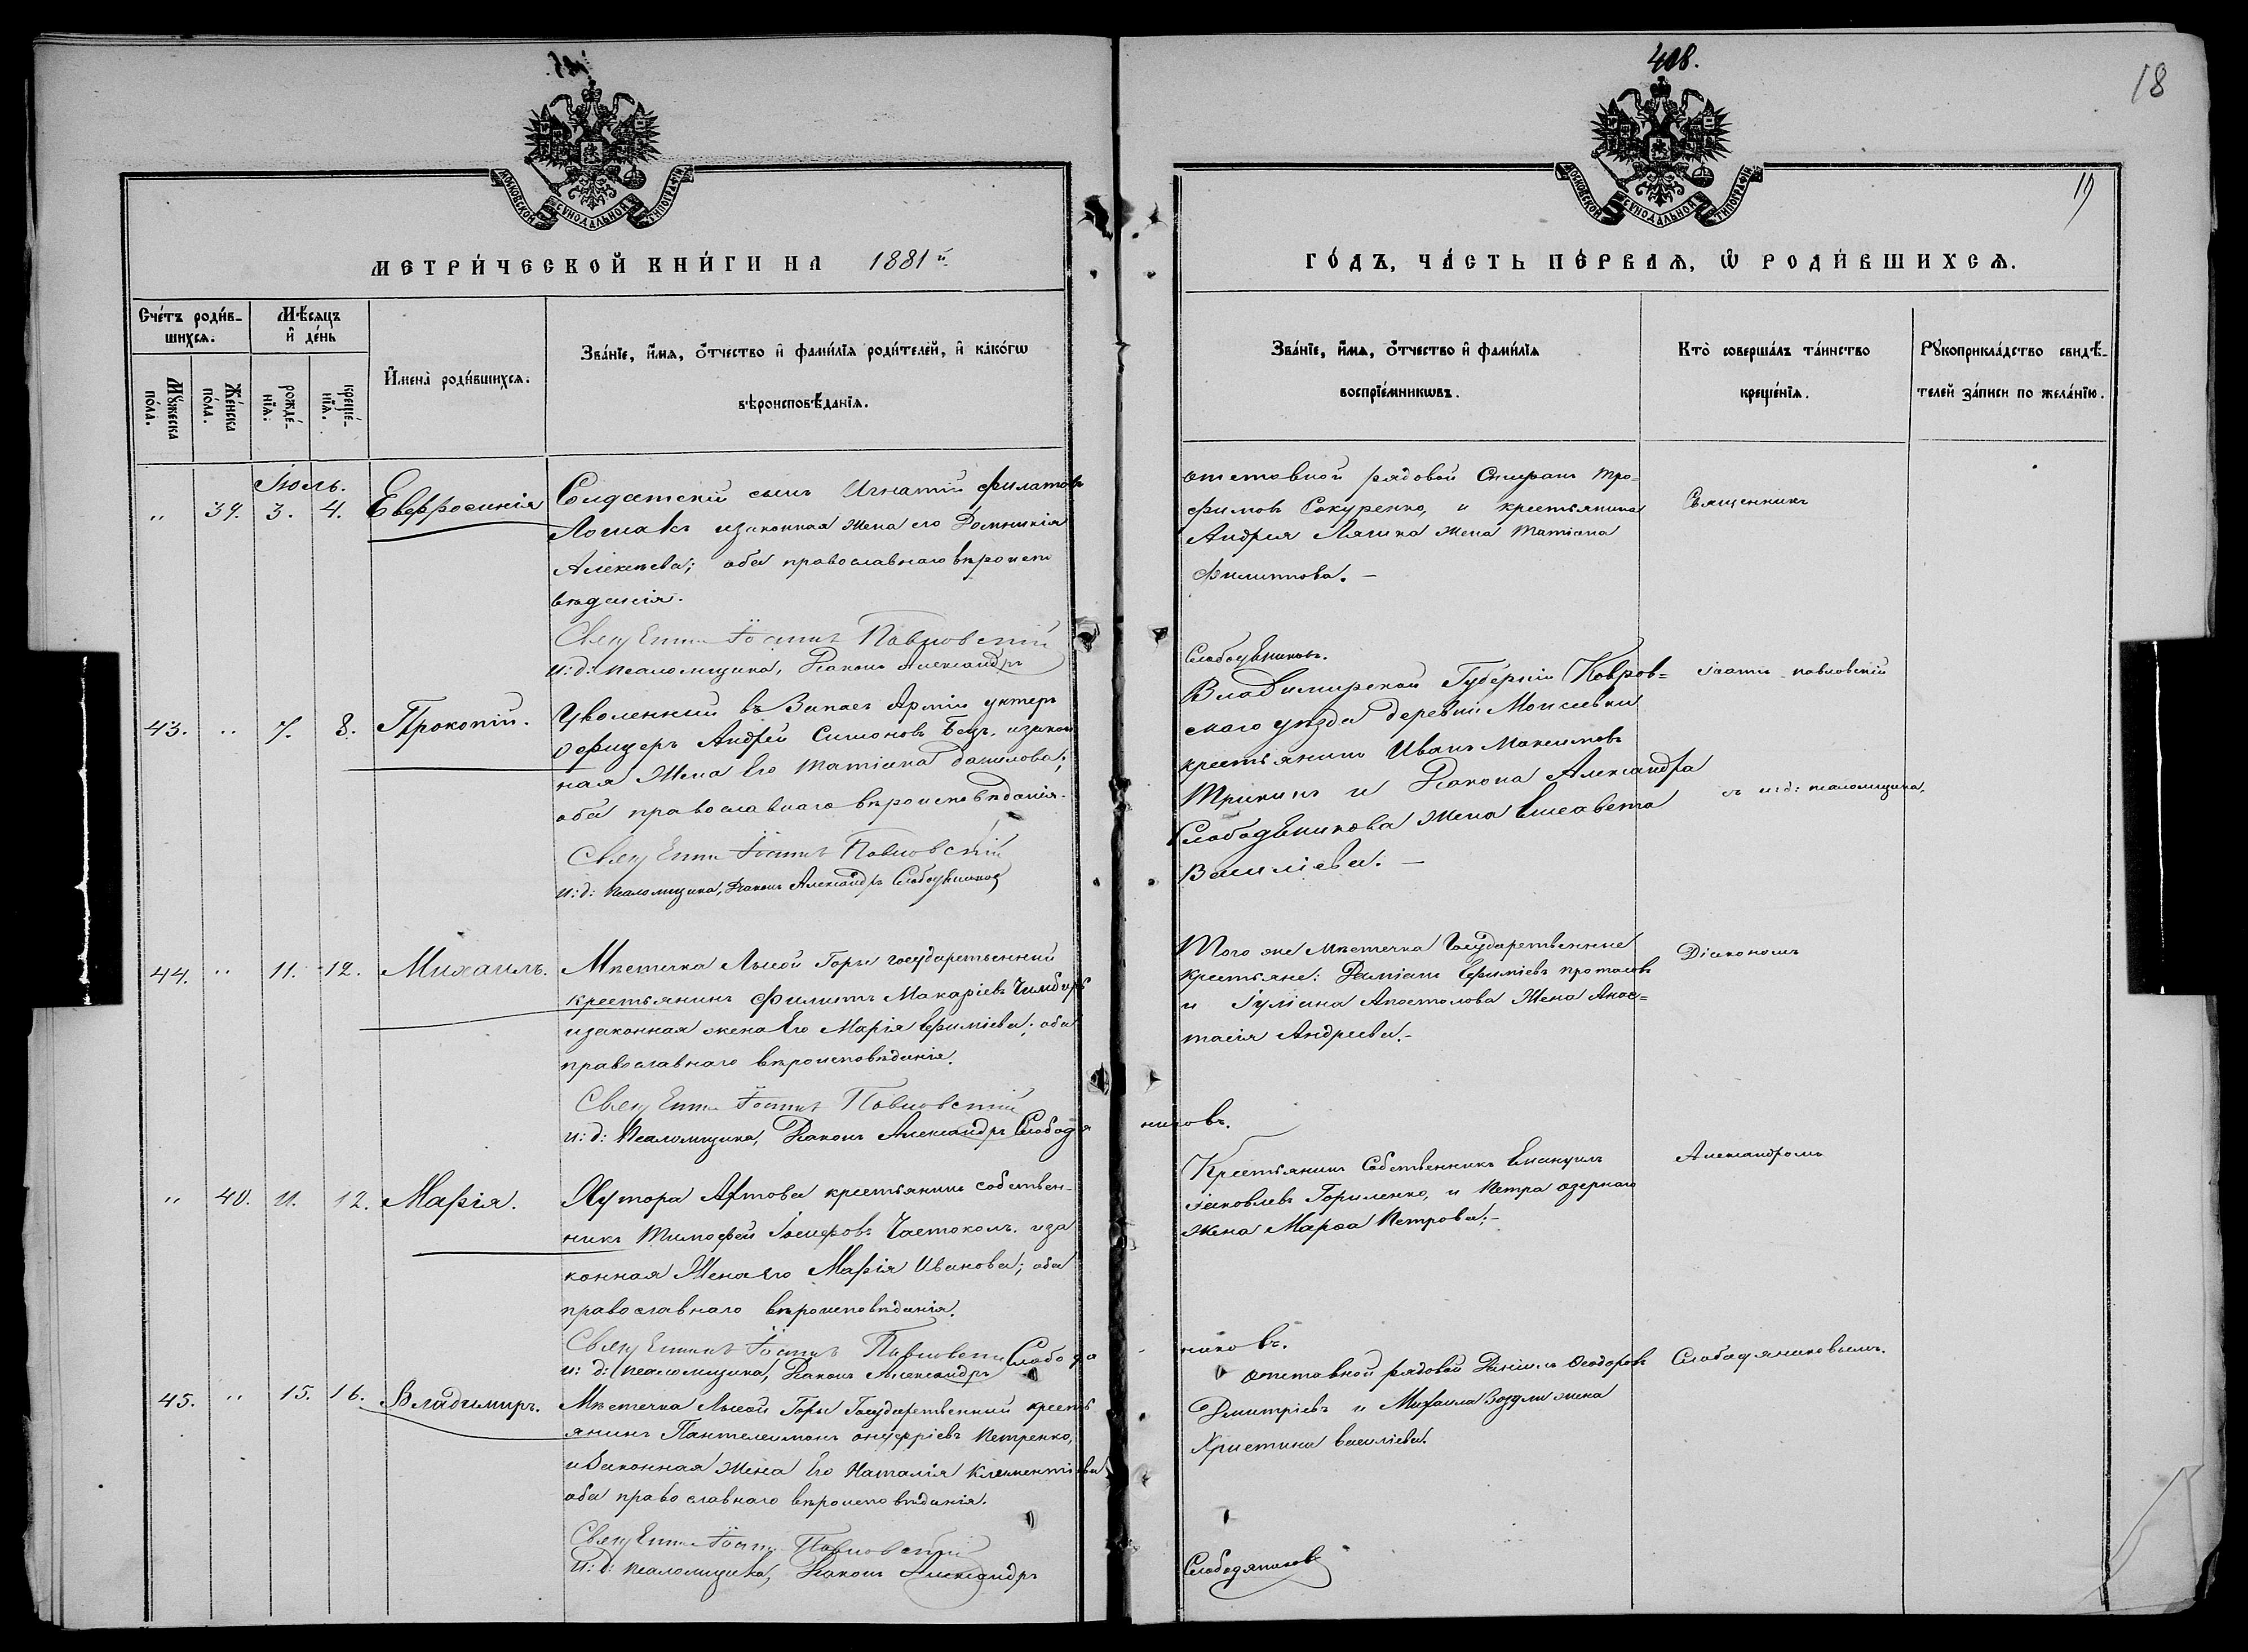 408.
18
19
МОСКОВСКОЙ СѴНОДАЛЬНОЙ ТИПОГРАФІИ
МОСКОВСКОЙ СѴНОДАЛЬНОЙ ТИПОГРАФІИ
МЕТРИ́ЧЕСКОЙ КНИ́ГИ НА 1881й
ГО́ДЪ, ЧА́СТЬ ПЕ́РВАѦ, Ѡ҆ РОДИ́ВШИХСѦ.
Сче́тъ роди́в-
шихсѧ.
Мꙋ́жеска
по́ла.
Же́нска
по́ла.
Мѣ́сяцъ
и҆ де́нь
рожде́-
нїѧ.
креще́-
нїѧ.
И҆мена̀ роди́вшихсѧ.
Зва́нїе, и҆́мѧ, ѻ҆́тчество и҆ фами́лїѧ роди́телей, и҆ како́гѡ
вѣроисповѣ́данїѧ.
Зва́нїе, и҆́мѧ, ѻ҆́тчество и҆ фами́лїѧ
воспрїе́мникѡвъ.
Кто̀ соверша́лъ та́инство
креще́нїѧ.
Рꙋкоприкла́дство свидѣ́-
телей за́писи по жела́нїю.
Іюль.
„ 39. 3. 4. Евфросинія
Солдатскій сынъ Игнатій Филатовъ
Лошакъ изаконная жена его Домникія
Алексѣева; оба православнаго вѣроиспо
вѣданія.
Священникъ Іоаннъ Павловскій
и: д: псаломщика, Діаконъ Александръ
отставной рядовой Стефанъ Тро-
фимовъ Сокуренко, и крестьянина
Андрея Ляшка жена Татіана
Филиппова. —
Священникъ
43. „ 7. 8. Прокопій.
Уволенный въ Запасъ Арміи унтеръ
офицеръ Андрей Симоновъ Бецъ, изакон
ная Жена Его Татіана Данилова;
оба православнаго вѣроисповѣданія.
Священникъ Іоаннъ Павловскій
и: д: псаломщика, Діаконъ Александръ Слободяников
Слободяниковъ.
Владимирской Губерніи Ковров=
скаго уѣзда деревни Моисеевки
крестьянинъ Иванъ Максимовъ
и Діакона Александра
Слободяникова жена Елисавета
Василіева. —
Іоаннъ Павловскій
съ и: д: псаломщика,
44. „ 11. 12. Михаилъ.
Мѣстечка Лысой Горы государственный
крестьянинъ Филиппъ Макаріевъ Чимбуръ
изаконная жена Его Марія Ефиміева; оба
православнаго вѣроисповѣданія.
Священникъ Іоаннъ Павловскій
и: д: Псаломщика, Діаконъ Александръ Слободя
никовъ.
Того же мѣстечка Государственные
крестьяне: Даміанъ Ефиміевъ Протасовъ
и Іуліана Апостолова Жена Анас=
тасія Андреева. —
Діакономъ
„ 40. 11. 12. Марія.
Хутора крестьянинъ собствен-
никъ Тимофей Іосифовъ Частоколъ. иза
конная Жена его Марія Иванова; оба
православнаго вѣроисповѣданія.
Священникъ Іоаннъ Павловскій
и: д: псаломщика, Діаконъ Александръ Слободя
никовъ.
Крестьянинъ Собственникъ Емануилъ
Іаковлевъ Гориленко, и Петра Озернаго
жена Марѳа Петрова; —
Александромъ
45. „ 15. 16. Владимиръ.
Мѣстечка Лысой Горы Государственный кресть
янинъ Пантелеимонъ Онуфріевъ Петренко,
и Законная жена Его Наталія Климентіева
оба православнаго вѣроисповѣданія.
Священникъ Іоаннъ Павловскій
И: д: псаломщика, Діаконъ Александръ
Слободяников
отставной рядовой Даніилъ Ѳеодоровъ
Дмитріевъ и Михаила жена
Христина Василіева.
Слободяниковымъ.